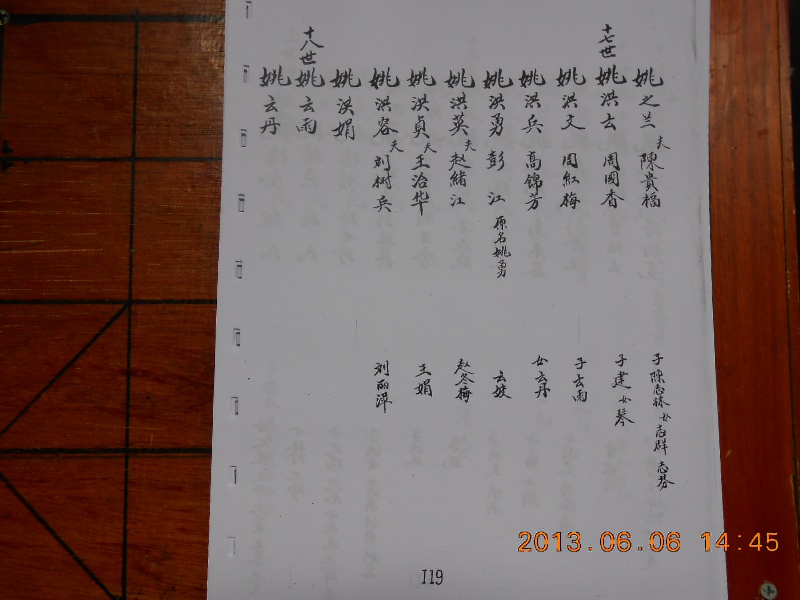 姚之兰 夫陳貴福 子陳志林 女志群 志芬
十七世
姚洪云 周國香 子建 女琴
姚洪文 周紅梅 子云雨
姚洪兵 高锦芳 女云丹
姚洪勇 彭江 原名姚勇 云姣
姚洪英 夫赵緒江 赵冬梅
姚洪贞 夫王治华 王娟
姚洪容 夫刘树兵 刘丽萍
姚洪娟
十八世
姚云雨
姚云丹
119
2013.06.06 14:45